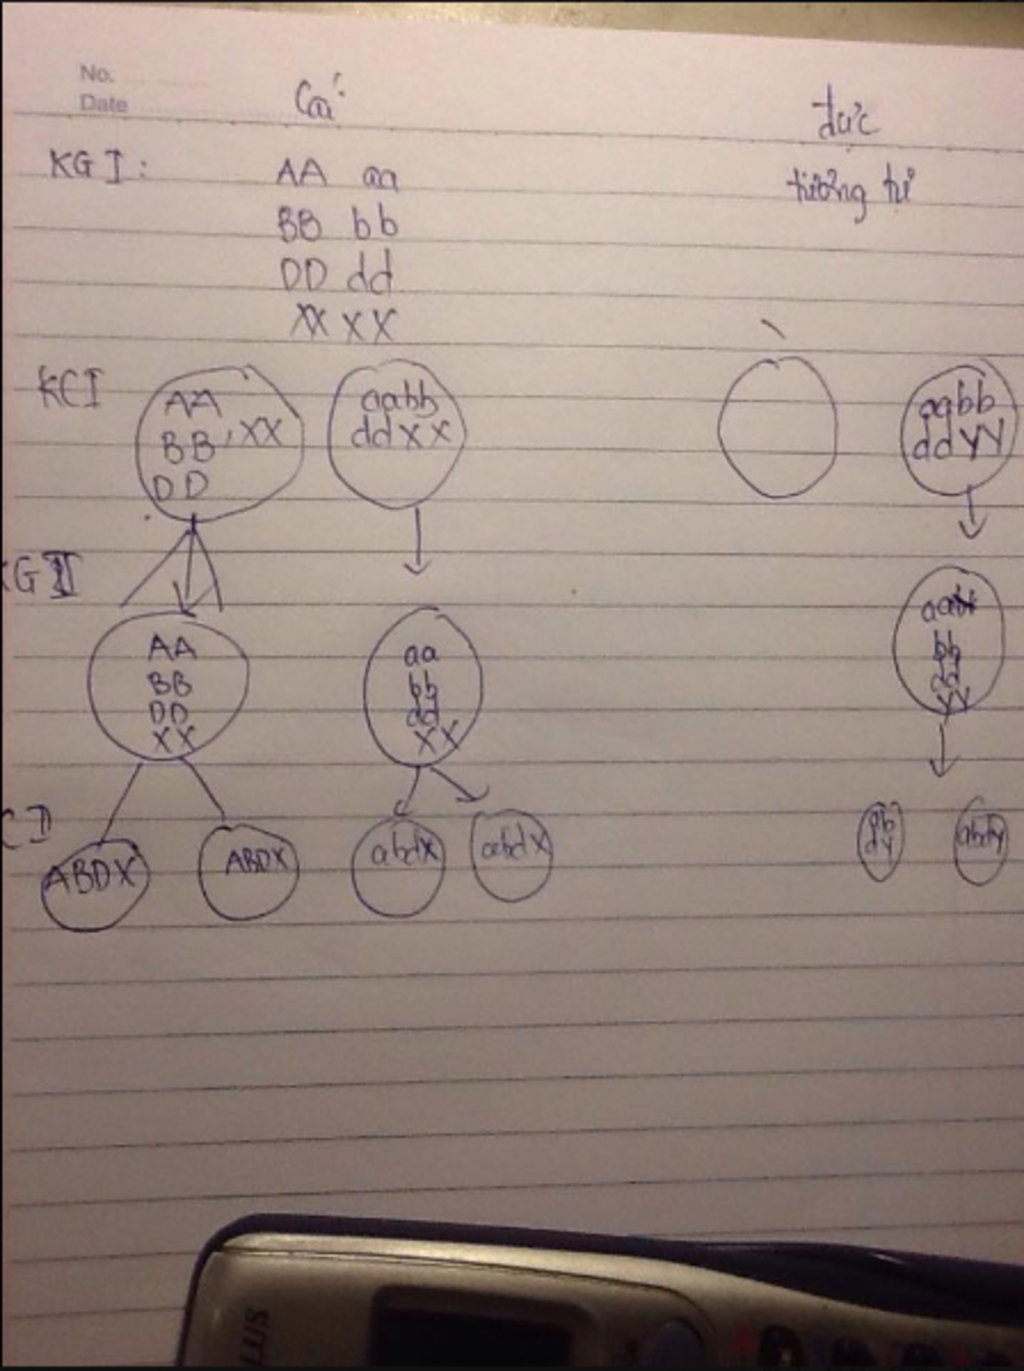 No.
Date
Cái
đực
KG I:
AA aa
tương tự
BB bb
DD dd
XX XX
KCI
AA
BB, XX
DD
aabb
ddXX
aabb
ddYY
KG II
AA
BB
DD
XX
aa
bb
dd
XX
aa
bb
dd
YY
ABDX
ABDX
abdX
abdX
ab
dY
abdY